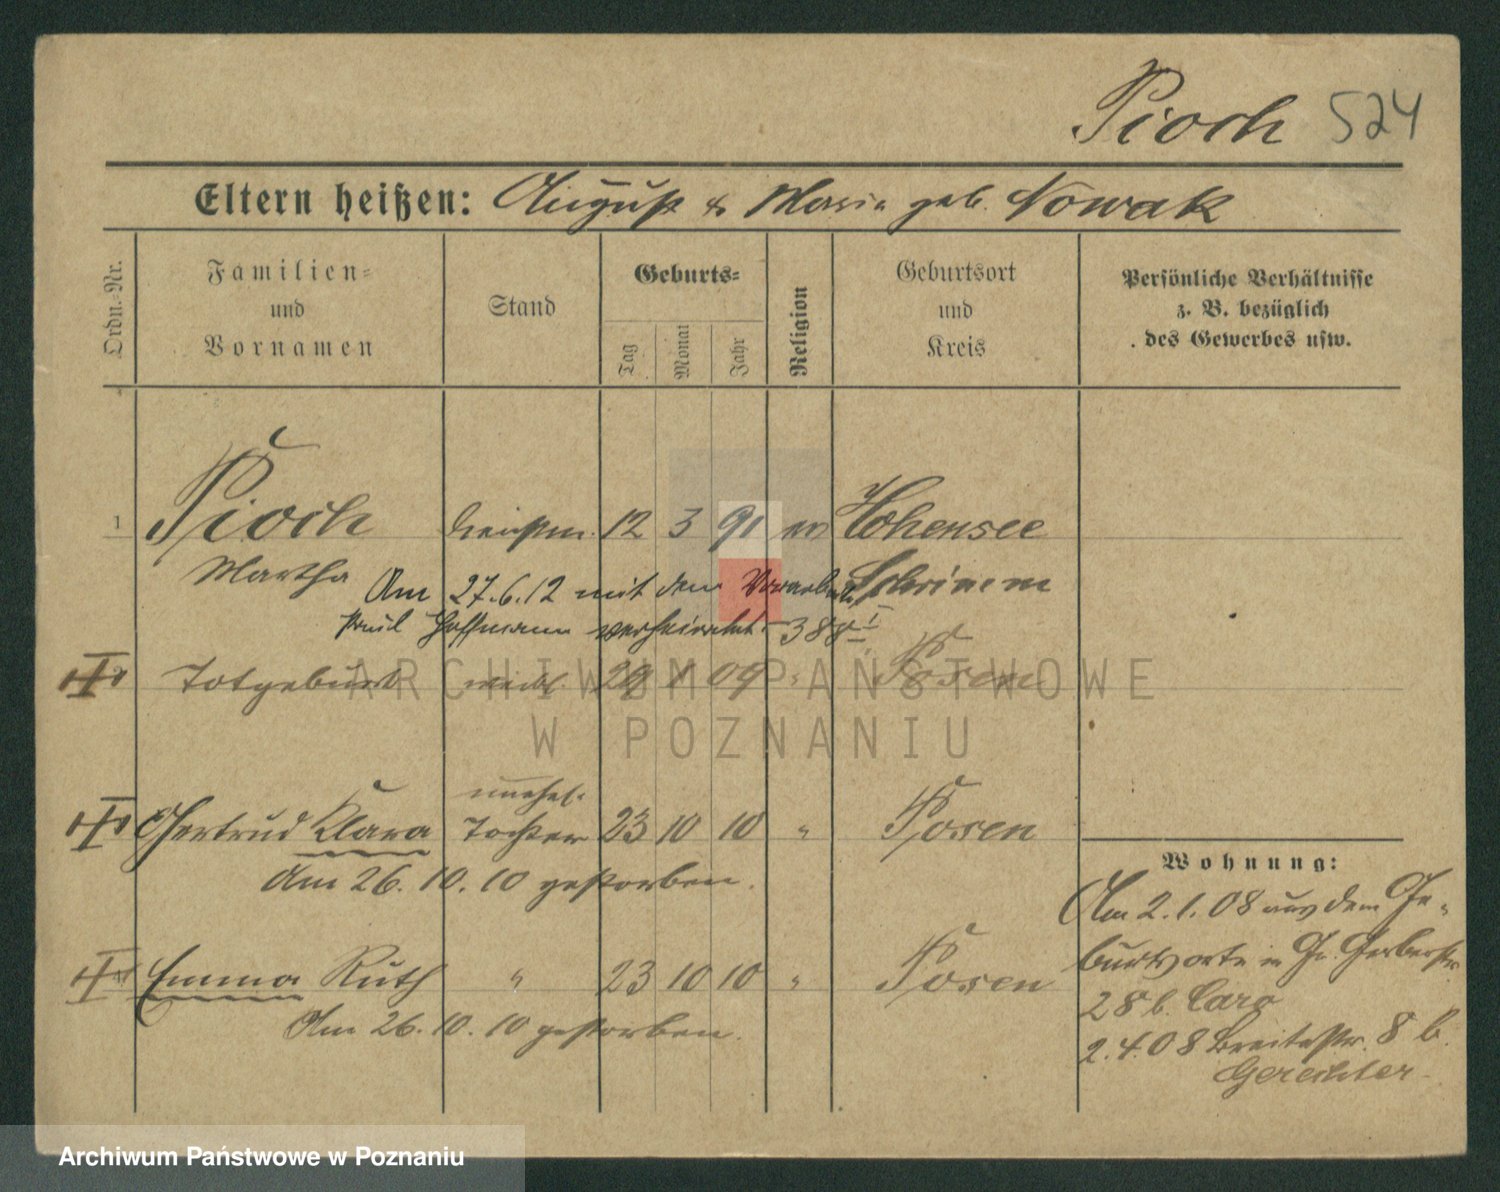 Pioch 524
Eltern heißen: August & Maria geb. Nowak
Ordn.=Nr.
Familien=
und
Vornamen
Stand
Geburts=
Tag
Monat
Jahr
Religion
Geburtsort
und
Kreis
Persönliche Verhältnisse
z. B. bezüglich
des Gewerbes usw.
1 Pioch 12 3 91 ev Hohensee
Martha Schrimm
Am 27.6.12 mit dem
Paul Hoffmann verheiratet. 388
Totgeburt weibl. 29 1 09 " Posen
unehel.
Gertrud Klara Tochter 23 10 10 " Posen
Am 26.10.10 gestorben.
Emma Ruth " 23 10 10 " Posen
Am 26.10.10 gestorben.
Wohnung:
Am 2.1.08 aus dem Ge-
burtsorte in Gr. Gerberstr
28 b. Caro
2.4.08 Breitestr. 8 b.
Gerechter
ARCHIWUM PAŃSTWOWE
W POZNANIU
Archiwum Państwowe w Poznaniu